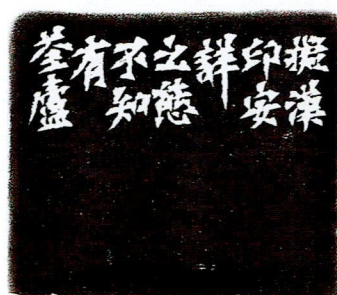 擬漢
印安
詳
之態
不知
有
荃廬